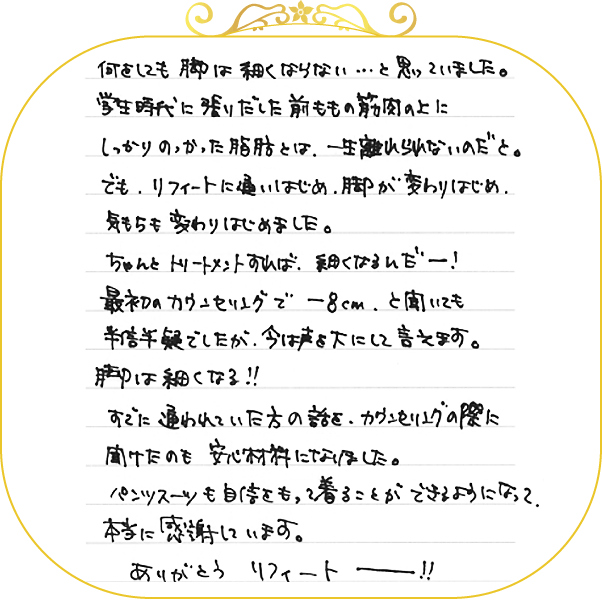 何をしても 脚は 細くならない…と思っていました。
学生時代に 張りだした 前ももの筋肉の上に
しっかりのっかった 脂肪とは、一生離れられないのだと。
でも、リフィートに通いはじめ、脚が変わりはじめ、
気もちも 変わりはじめました。
ちゃんと トリートメントすれば、細くなるんだー!
最初のカウンセリングで －8cm、と聞いても
半信半疑でしたが、今は声を大にして 言えます。
脚は 細くなる!!
すでに 通われていた方の話を、カウンセリングの際に
聞けたのも 安心材料になりました。
パンツスーツも自信をもって着ることが できるようになって、
本当に感謝しています。
ありがとう リフィート ——!!